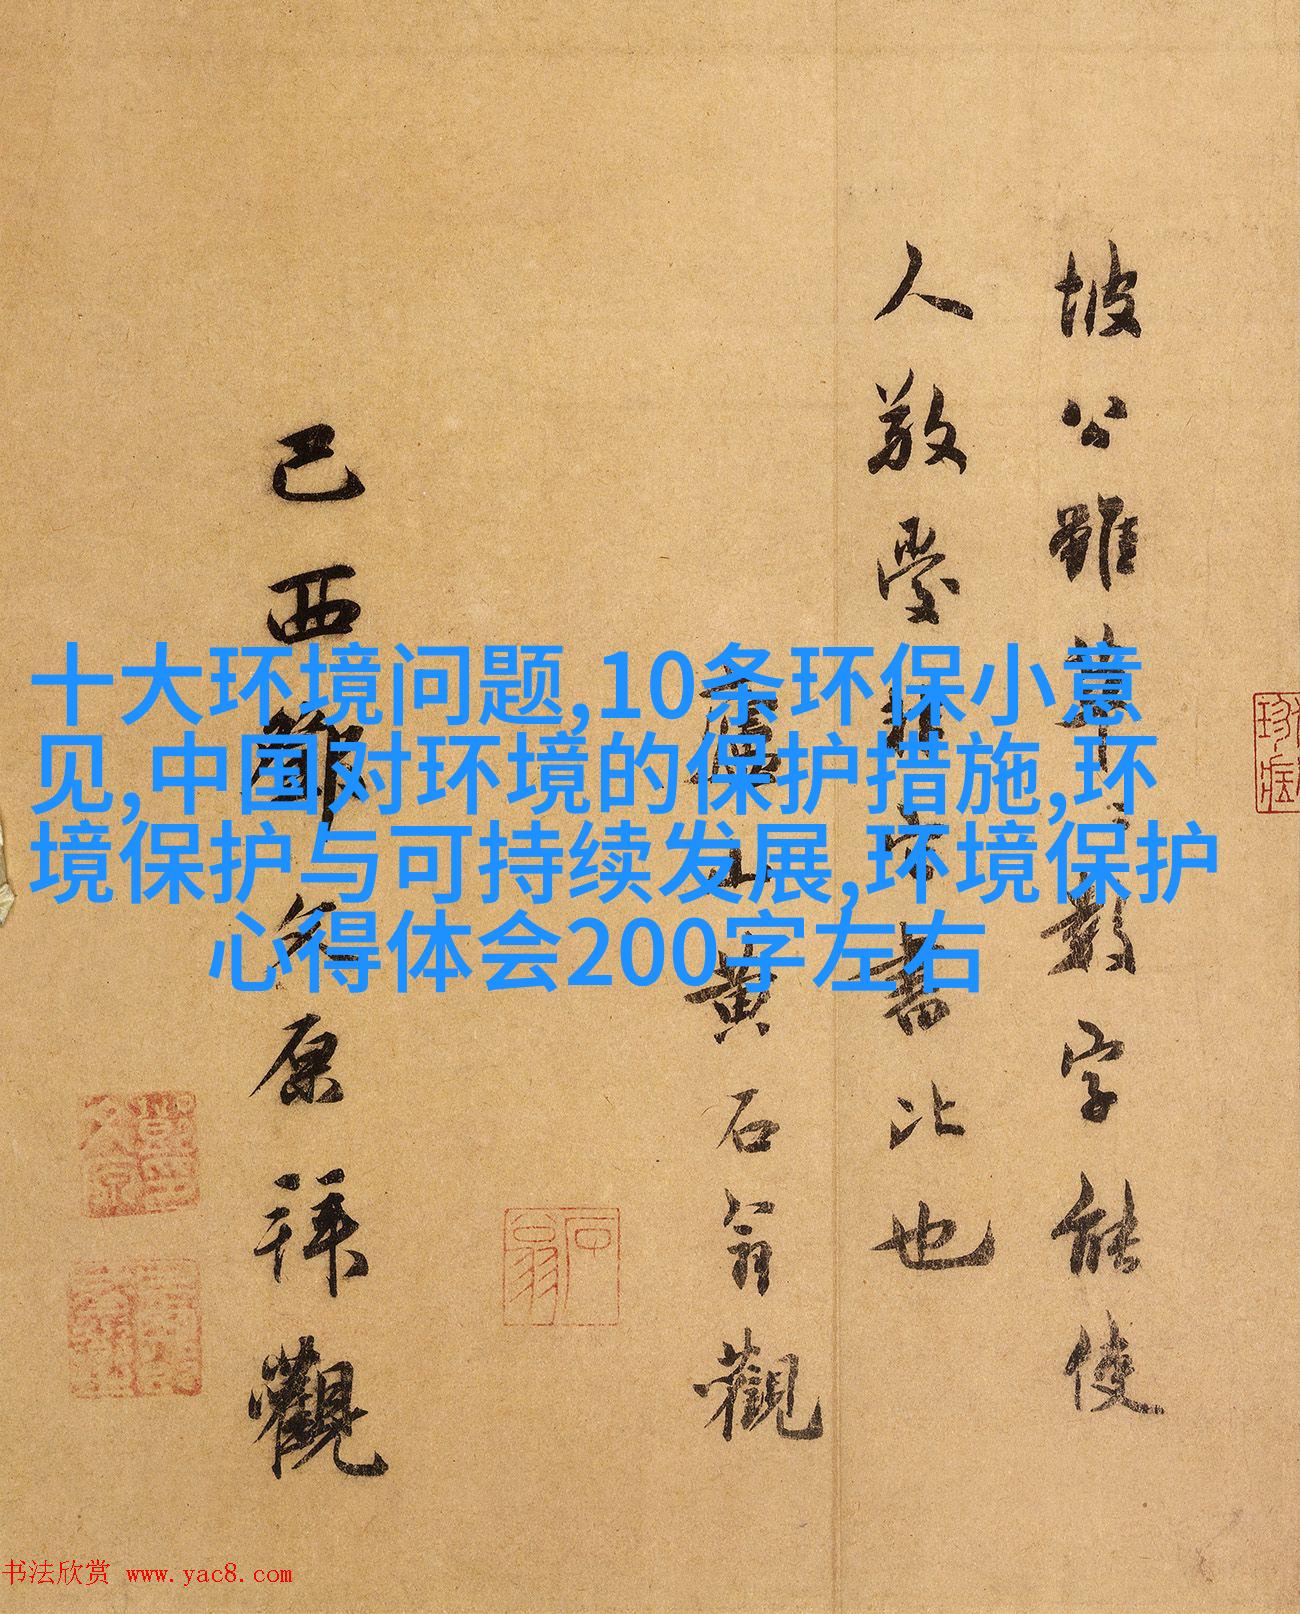 坡公雖草草數字能使
人敬愛
書比也
黄石翁觀
己酉鄧文原拜觀
十大环境问题,10条环保小意
见,中国对环境的保护措施,环
境保护与可持续发展,环境保护
心得体会200字左右
石翁
书法欣赏 www.yac8.com